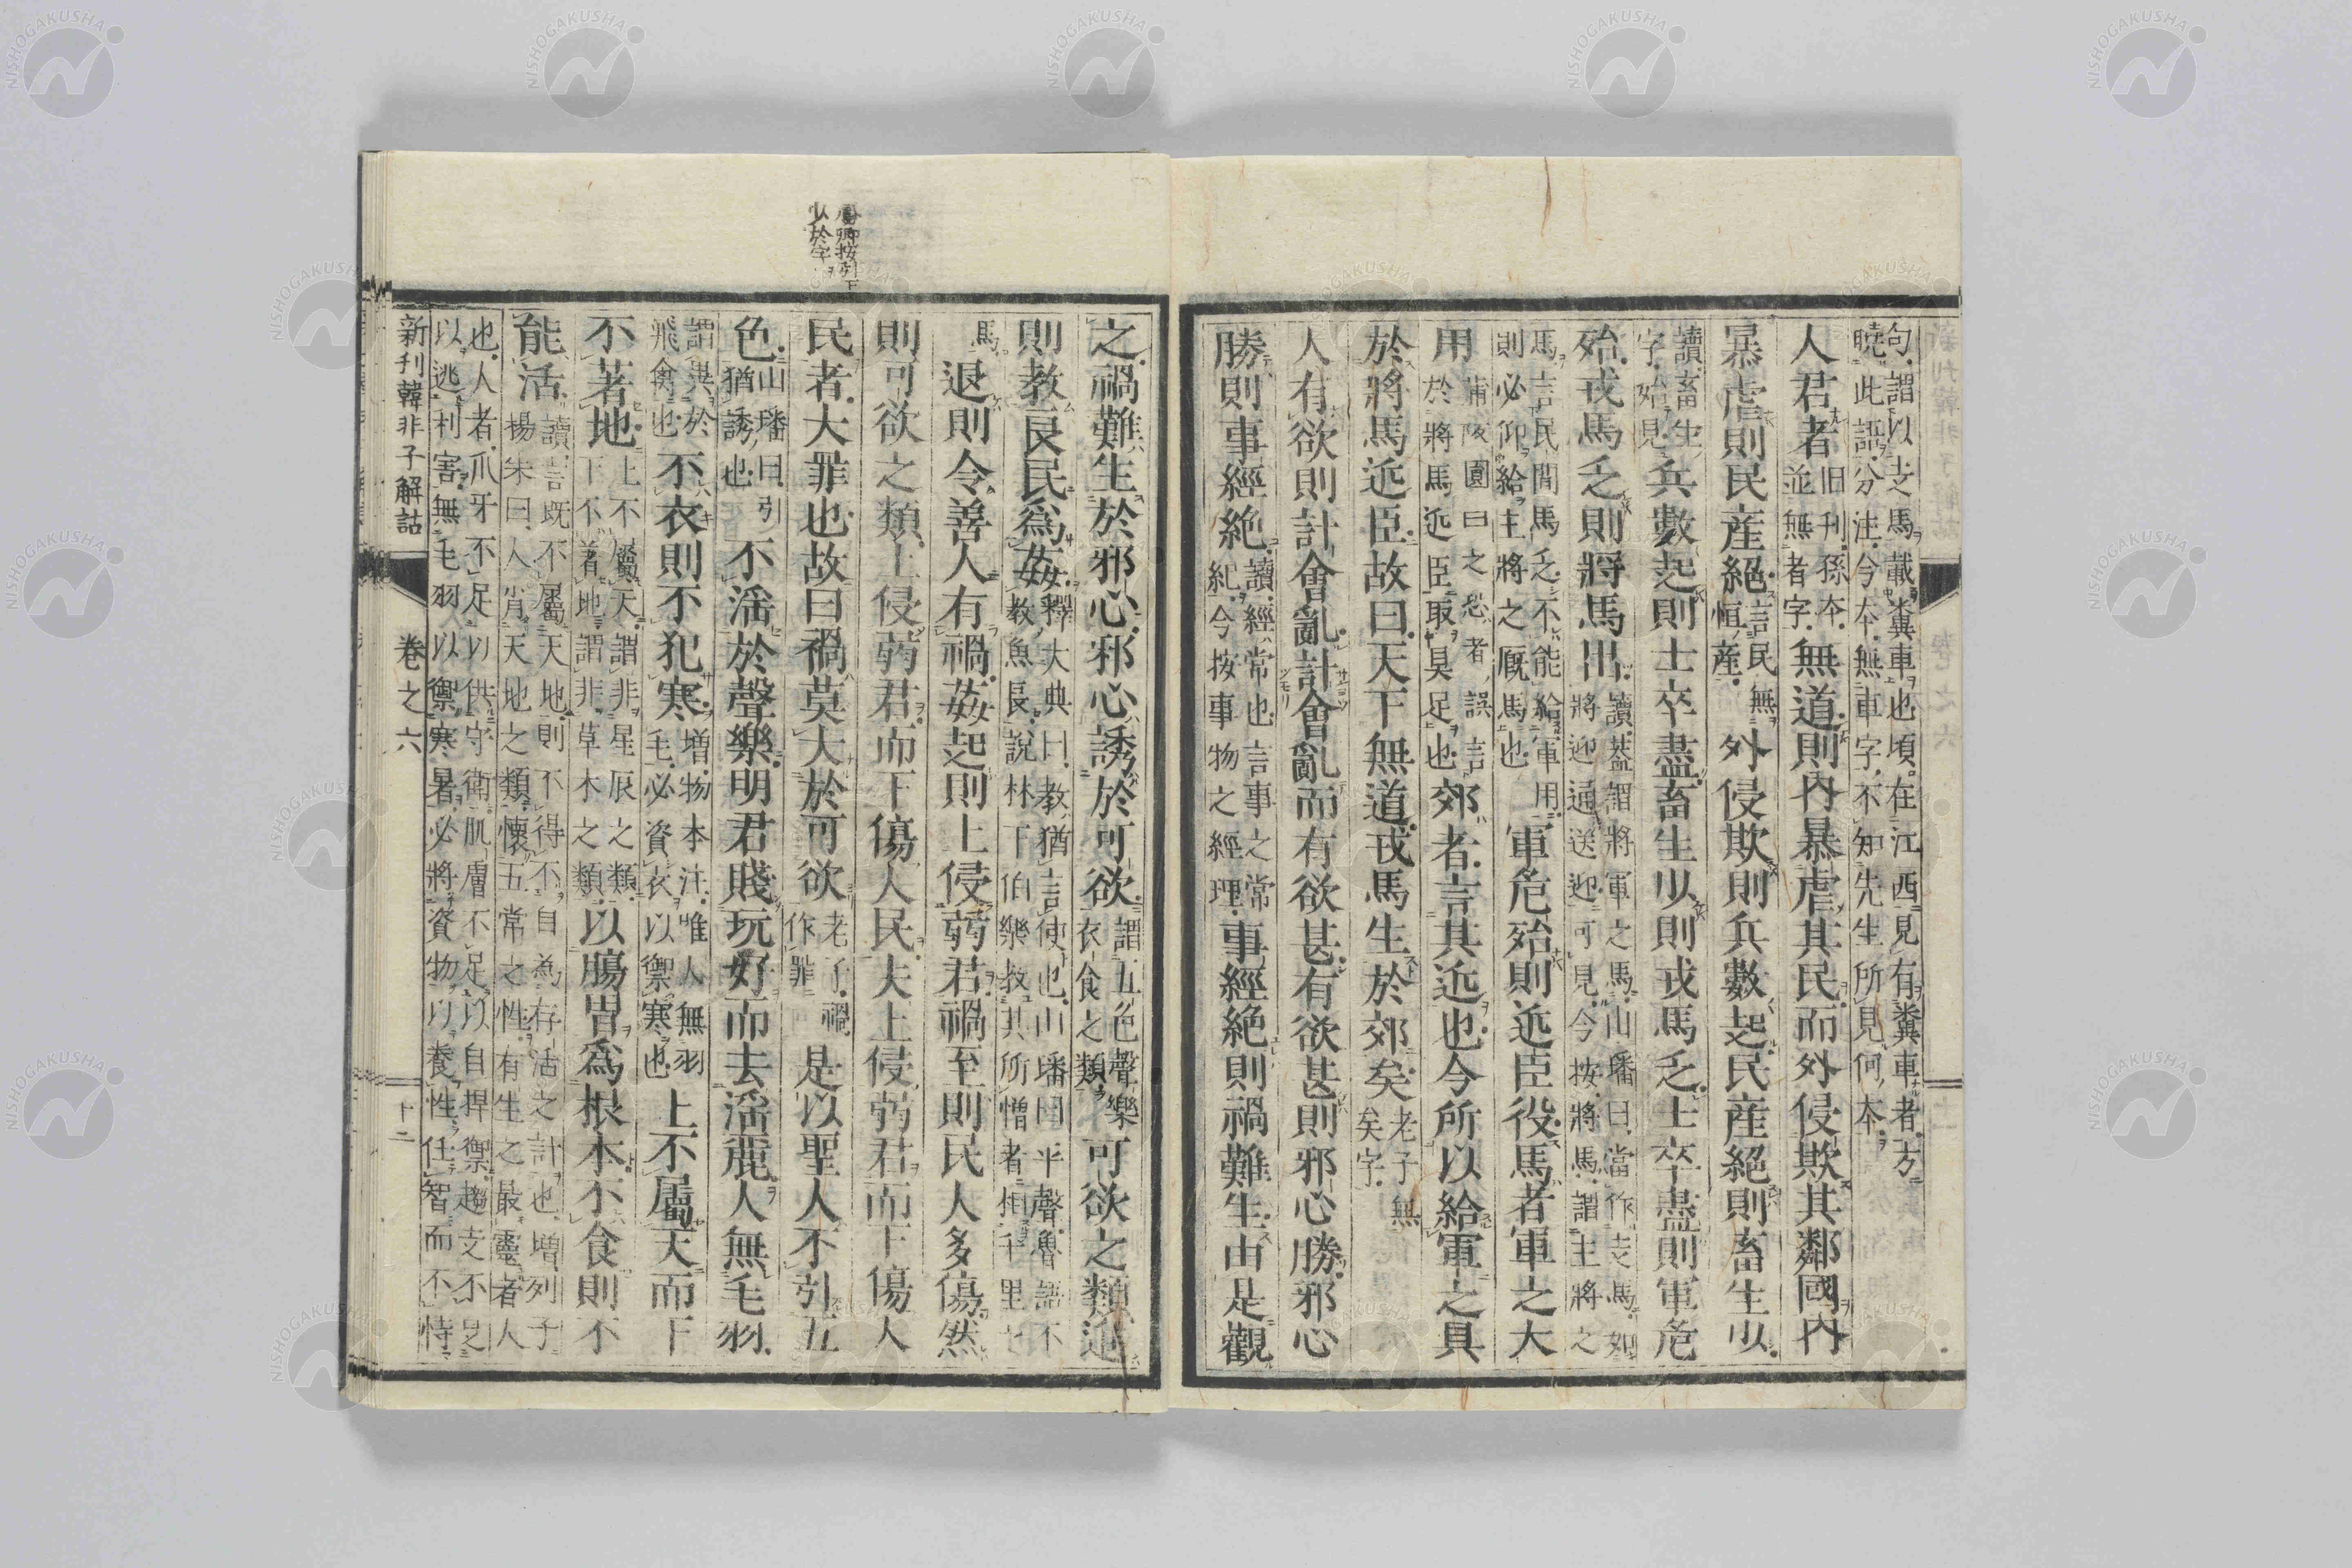 句謂以走馬載糞車也頃在江西見有糞車者方
曉此語分注今本無車字不知先生所見何本
人君者旧刊孫本並無者字無道則內暴虐其民而外侵欺其鄰國內
暴虐則民產絕言民無恒產外侵欺則兵數起民產絕則畜生少
讀畜生字始見兵數起則士卒盡畜生少則戎馬乏士卒盡則軍危
殆戎馬乏則將馬出讀蓋謂將軍之馬山璠曰當作走馬如將迎通送迎可見今按將馬謂主將之
馬言民間馬乏不能給軍用則必仰給主將之厩馬也軍危殆則近臣役馬者軍之大
用蒲阪圓曰之恐者誤言於將馬近臣取具足也郊者言其近也今所以給軍之具
於將馬近臣故曰天下無道戎馬生於郊矣老子無矣字
人有欲則計會亂計會亂而有欲甚有欲甚則邪心勝邪心
勝則事經絕讀經常也言事之常紀今按事物之經理事經絕則禍難生由是觀
之禍難生於邪心邪心誘於可欲謂五色聲樂衣食之類可欲之類進
則教良民爲姦釋大典曰教猶言使也山璠曰平聲魯語不教魚長說林下伯樂教其所憎者相千里之
馬退則令善人有禍姦起則上侵弱君禍至則民人多傷然
則可欲之類上侵弱君而下傷人民夫上侵弱君而下傷人
民者大罪也故曰禍莫大於可欲老子禍作罪是以聖人不引五
色山璠曰引猶誘也不淫於聲樂明君賤玩好而去淫麗人無毛羽
謂異於飛禽也不衣則不犯寒增物本注唯人無羽毛必資衣以禦寒也上不屬天而下
不著地上不屬天謂非星辰之類下不著地謂非草木之類以腸胃爲根本不食則不
能活讀言既不屬天地則不得不自為存活之計也增列子楊朱曰人肖天地之類懷五常之性有生之最靈者人
也人者爪牙不足以供守衛肌膚不足以自捍禦趨走不足
以逃利害無毛羽以禦寒暑必將資物以養性任智而不恃
新刊韓非子解詁
卷之六
十二